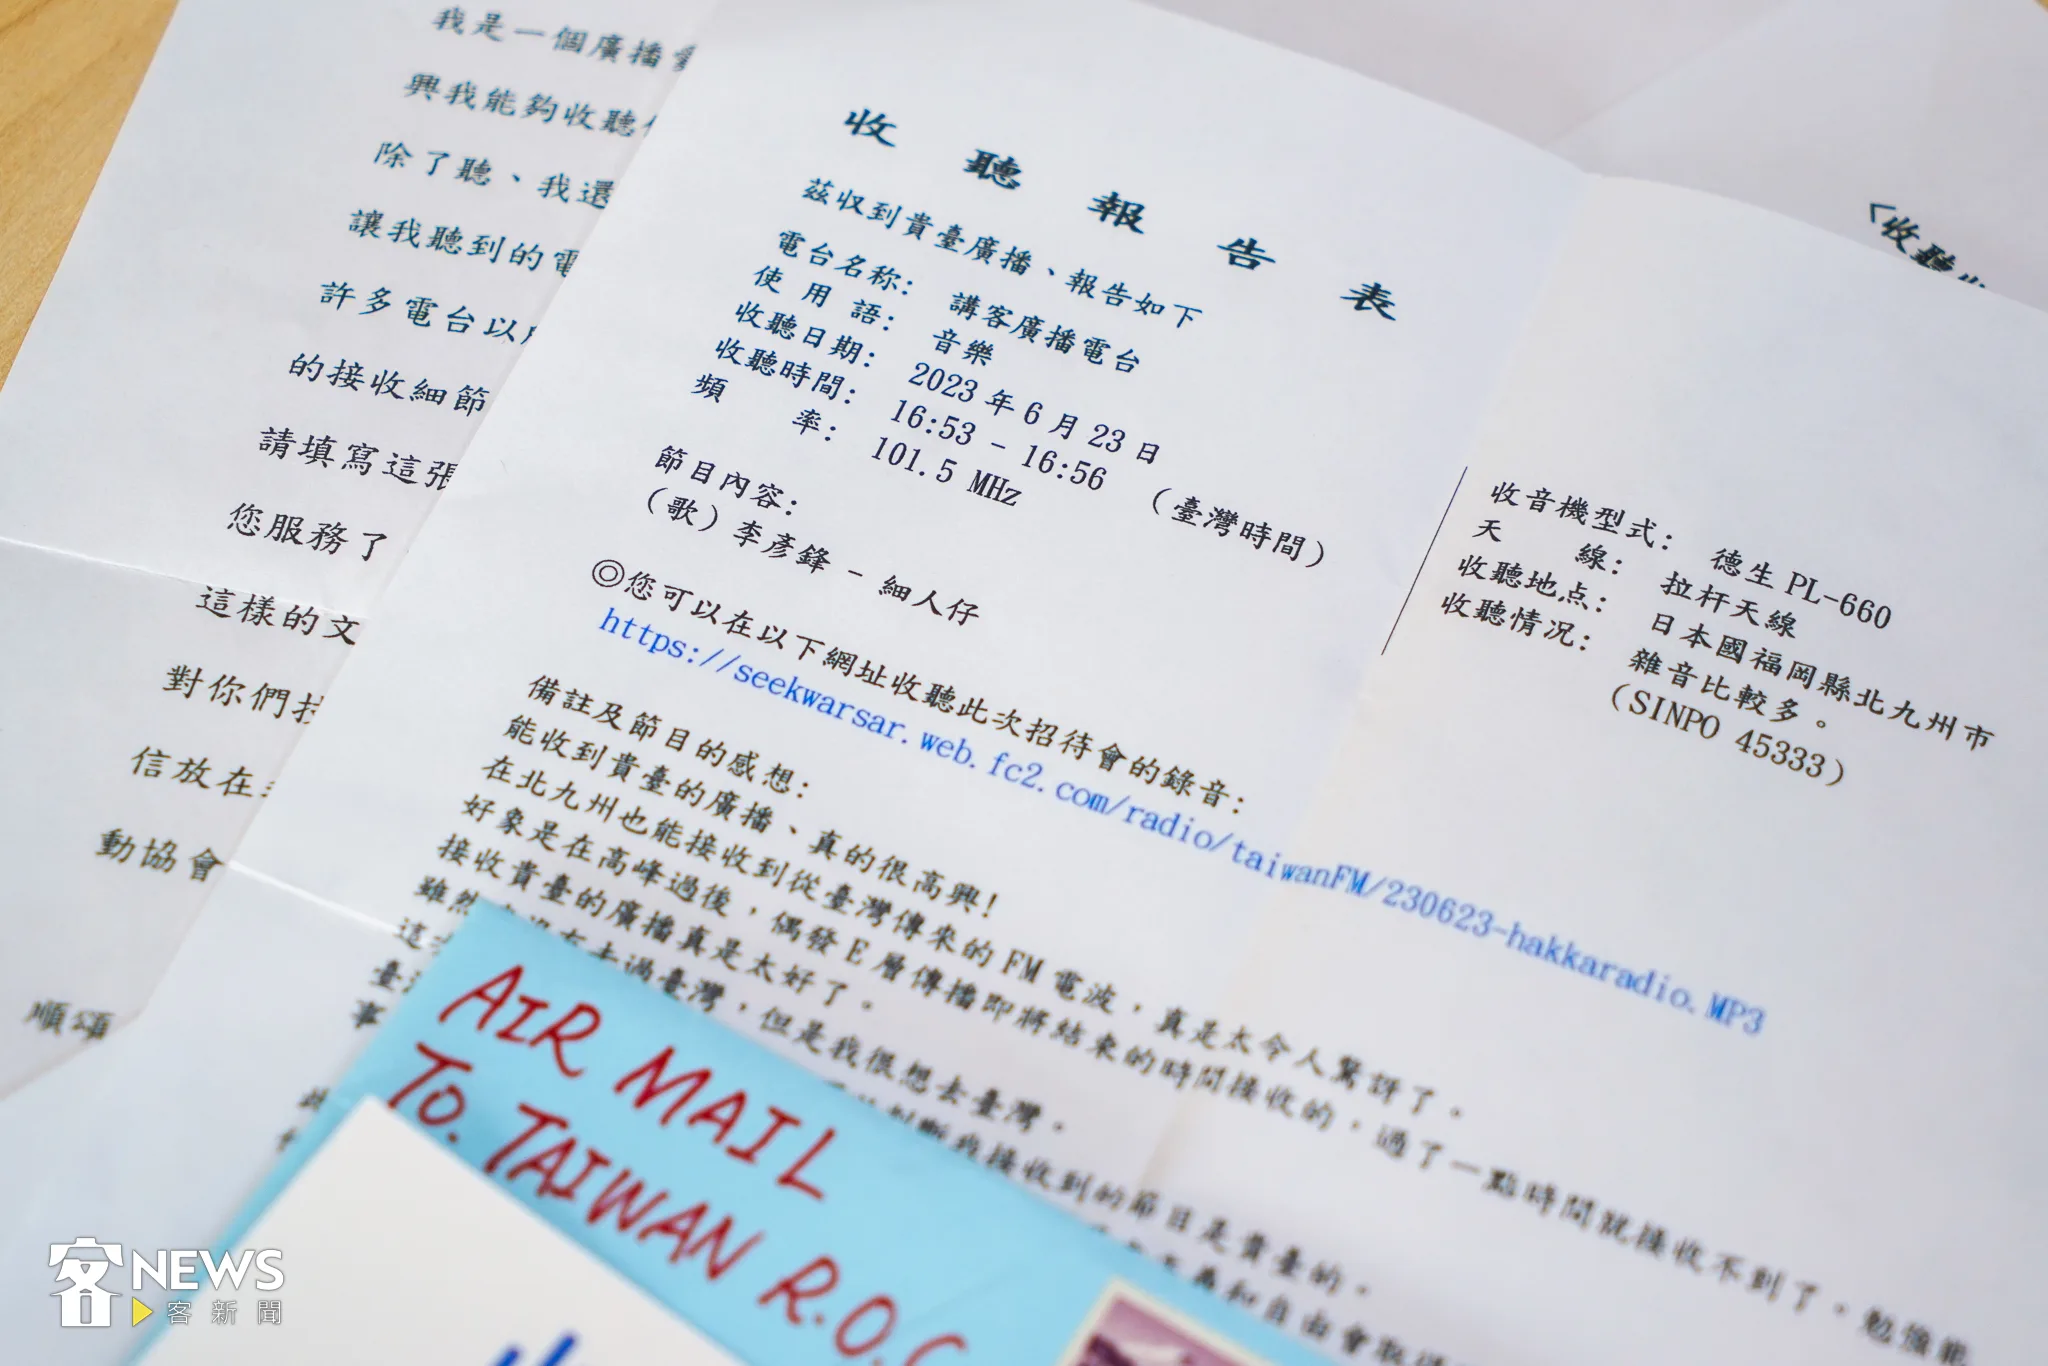 我是一個廣播
興我能夠收聽
除了聽、我還
讓我聽到的電
許多電台以
的接收細節
請填寫這張
您服務了
這樣的文
對你們
信放在
動協會
順頌
收聽報告表
茲收到貴臺廣播、報告如下
電台名称: 講客廣播電台
使用語: 音樂
收聽日期: 2023年6月23日
收聽時間: 16:53 - 16:56 (臺灣時間)
頻率: 101.5 MHz
節目內容:
(歌)李彥鋒 - 細人仔
◎您可以在以下網址收聽此次招待會的錄音:
https://seekwarsar.web.fc2.com/radio/taiwanFM/230623-hakkaradio.MP3
備註及節目的感想:
能收到貴臺的廣播、真的很高興!
在北九州也能接收到從臺灣傳來的FM電波,真是太令人驚訝了。
好象是在高峰過後,偶發E層傳播即將結束的時間接收的,過了一點時間就接收不到了。勉強能
接收貴臺的廣播真是太好了。
雖然 沒有去過臺灣,但是我很想去臺灣。
這 判斷我接收到的節目是貴臺的。
臺 和自由會取
事
收音機型式: 德生PL-660
天線: 拉杆天線
收聽地点: 日本國福岡縣北九州市
收聽情况: 雜音比較多。
(SINPO 45333)
「收聽
AIR MAIL
TO. TAIWAN R.O.C
客NEWS
客新聞